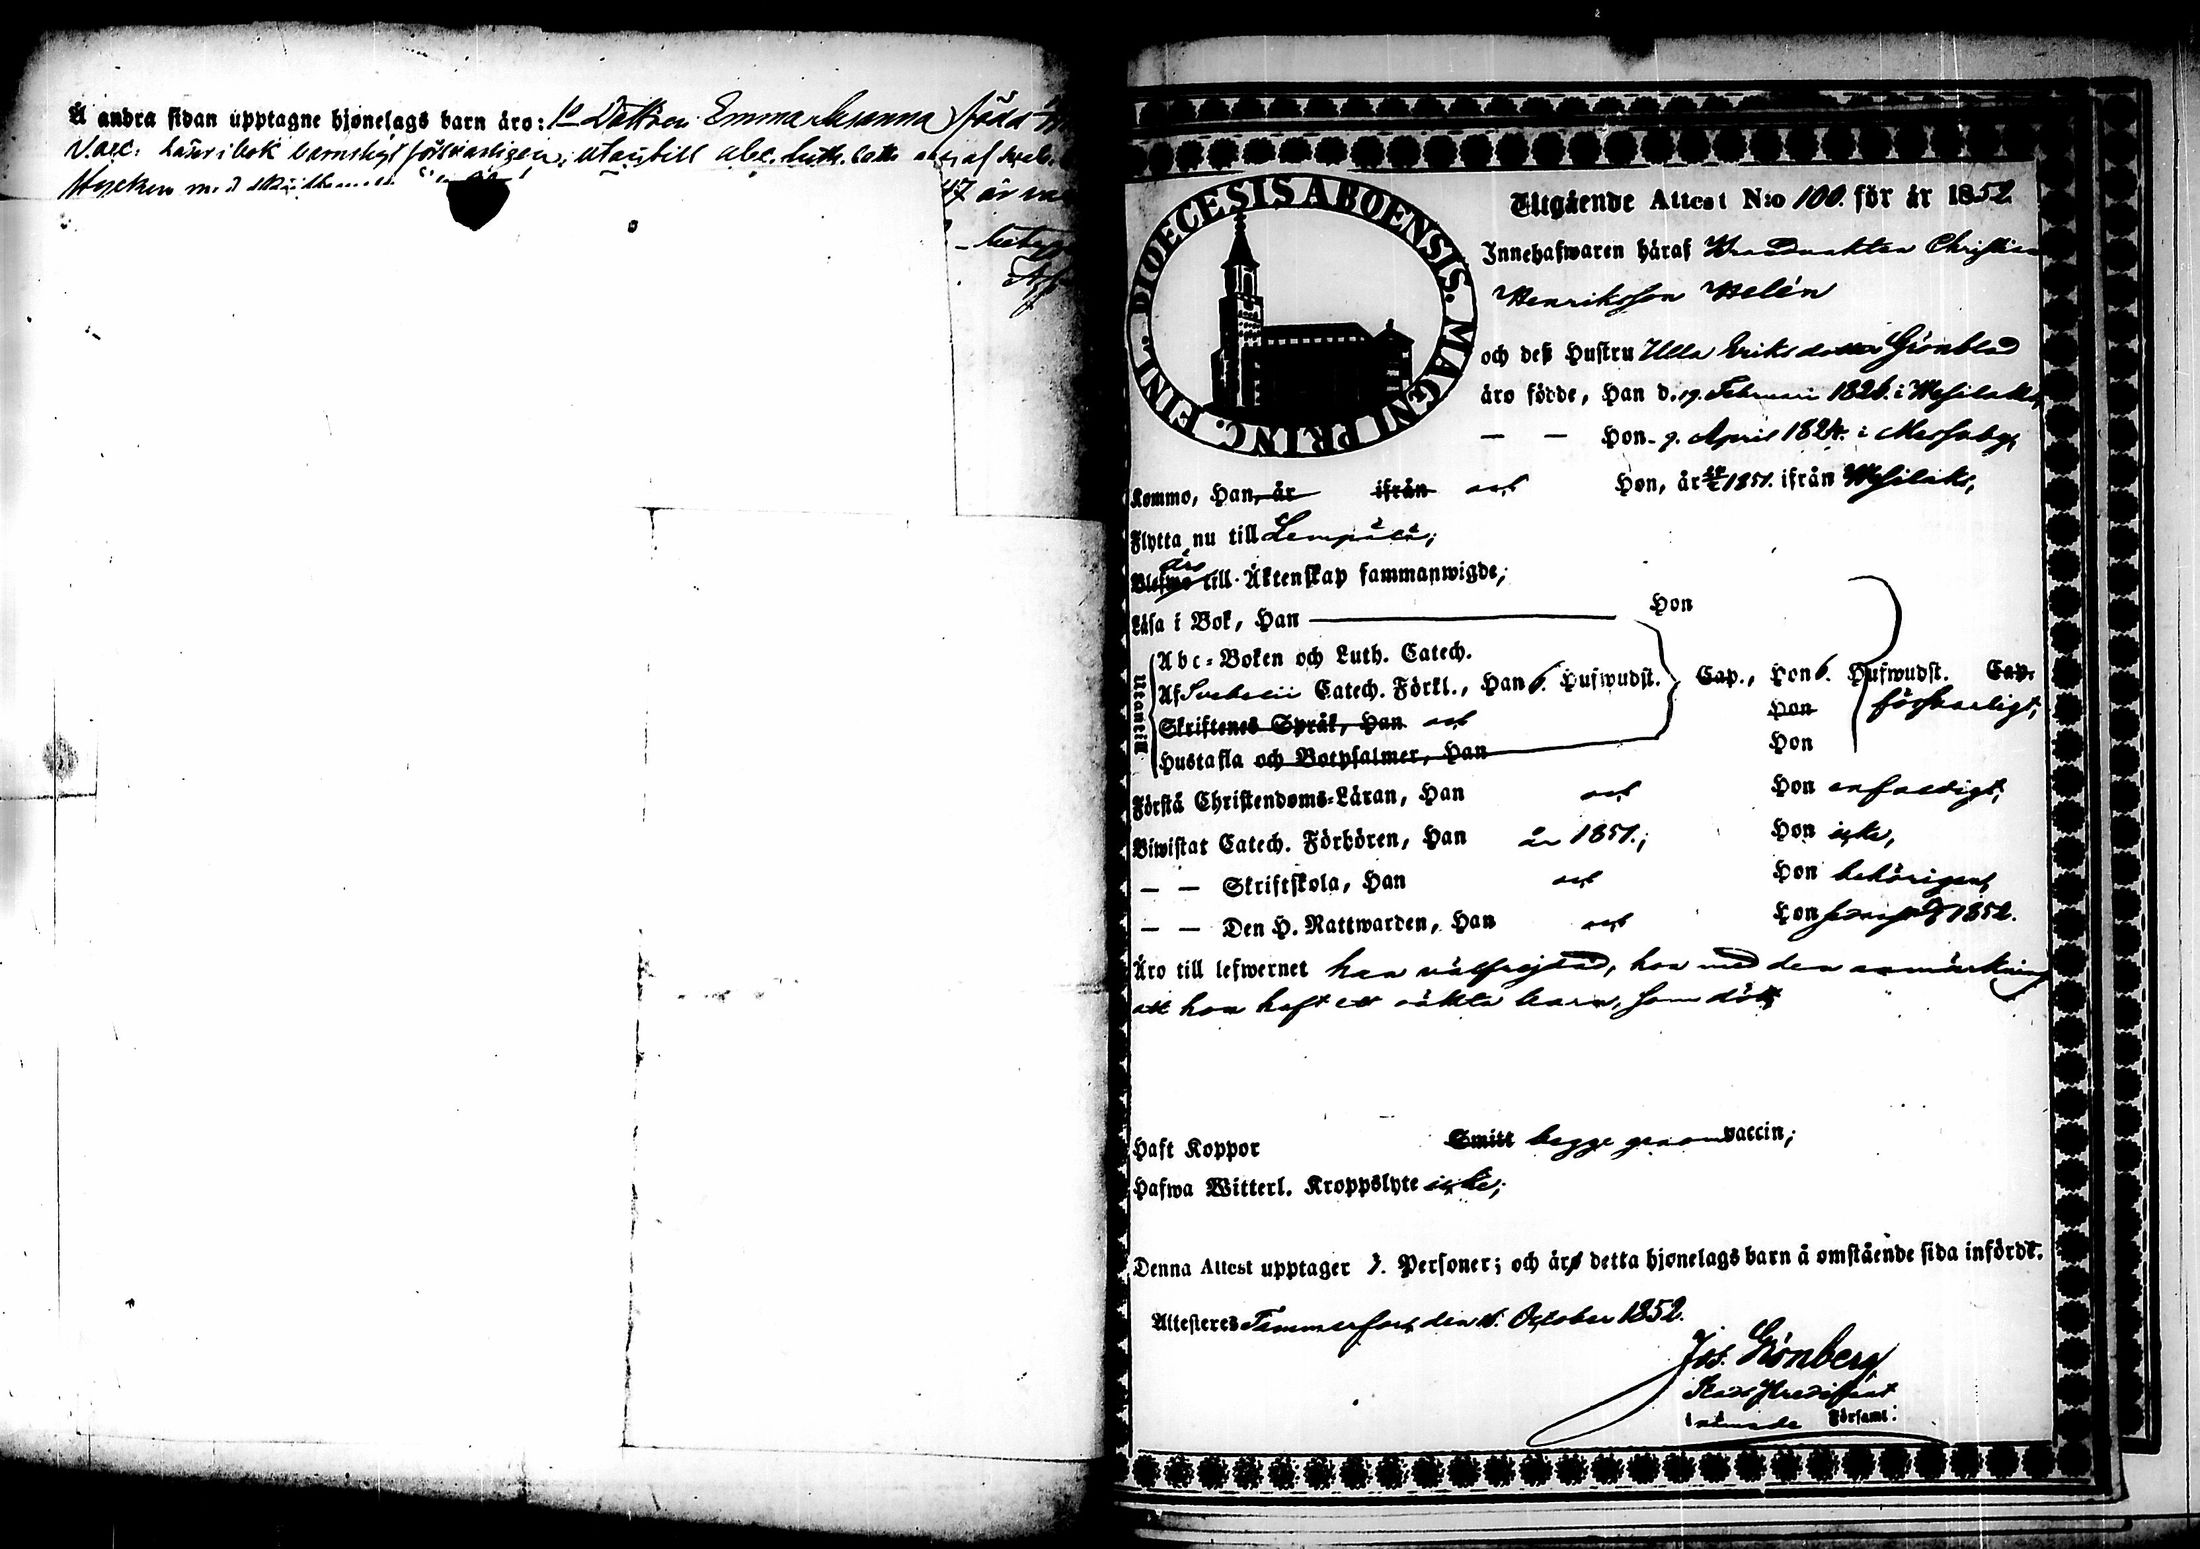 Å andra sidan upptagne hjonelags barn äro: 1o Dottren Emma Susanna, född
Vacc. Läser i bok barnsligt försvarligen, utantill abc. Luth. Cat. af Sveb.
Stycken med
47 är
betyg
DIOECESIS ABOENSIS. MAGNI PRINC. FINL.
Utgående Attest N:o 100. för år 1852.
Innehafwaren häraf Christian
Henriksson Helén
och deß Hustru Ulla Eriksdotter Grönblad
äro födde, Han d. 19. Februari 1826. i Wesilaks,
— — Hon 9. April 1824. i Messuby,
Komma, Han, år ifrån och Hon, år 1851. ifrån Wesilaks,
Flytta nu till Lempäälä;
äro
Blefwo till Äktenskap sammanwigde;
Läsa i Bok, Han Hon
Utantill
Abc-Boken och Luth. Catech.
Af Svebelii Catech. Förkl., Han 6. Hufwudst. Cap., Hon 6. Hufwudst. Cap.
försvarligt,
Skriftenes Språk, Han och Hon
Hustafla och Botpsalmer, Han Hon
Förstå Christendoms-Läran, Han och Hon enfaldigt,
Biwistat Catech. Förhören, Han år 1851.; Hon icke,
— — Skriftskola, Han och Hon behörigen,
— — Den H. Nattwarden, Han och Hon 1852.
Äro till lefwernet han välfrejdad, hon med den anmärkning
att hon haft ett oäkta barn, som dött,
Haft Koppor Smitt begge genom vaccin;
Hafwa Witterl. Kroppslyte icke;
Denna Attest upptager 3. Personer; och äro detta hjonelags barn å omstående sida infördt.
Attesteres Tammerfors, den October 1852.
Jos. Grönberg
Stads Predikant
i nämnde Församl: